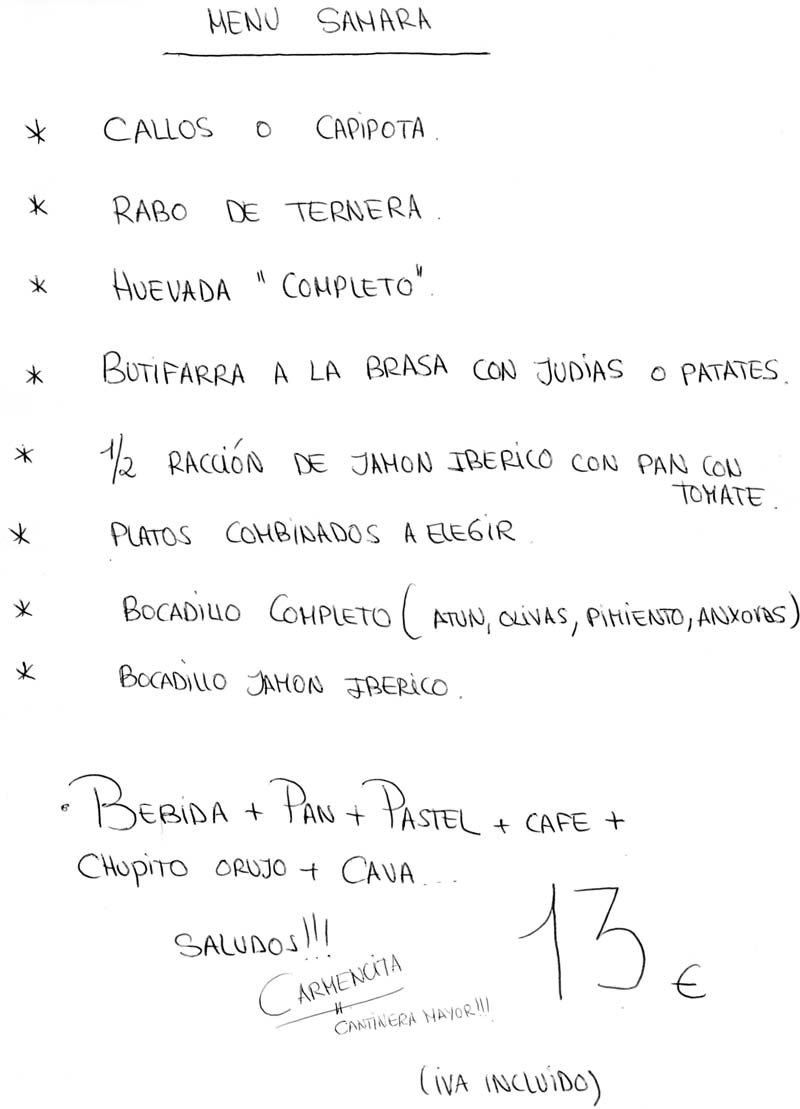 MENU SAMARA
* CALLOS O CAPIPOTA.
* RABO DE TERNERA.
* HUEVADA "COMPLETO".
* BUTIFARRA A LA BRASA CON JUDIAS O PATATES.
* 1/2 RACCIÓN DE JAMON IBERICO CON PAN CON
TOMATE.
* PLATOS COMBINADOS A ELEGIR.
* BOCADILLO COMPLETO (ATUN, OLIVAS, PIMIENTO, ANXOVAS)
* BOCADILLO JAMON IBERICO.
• BEBIDA + PAN + PASTEL + CAFE +
CHUPITO ORUJO + CAVA...
SALUDOS!!!
13 €
CARMENCITA
"
CANTINERA MAYOR!!!
(IVA INCLUIDO)